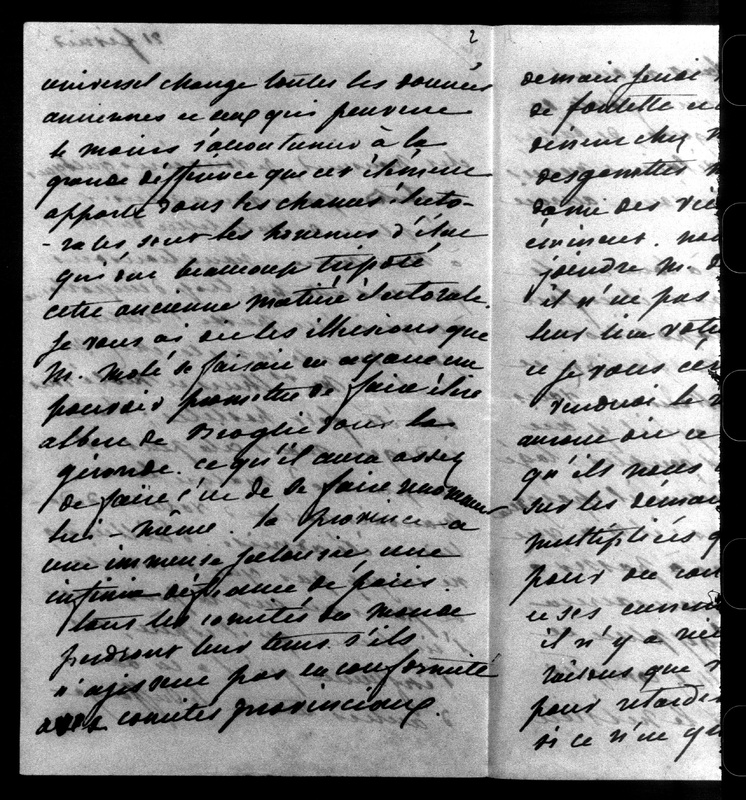 2
universel change toutes les données
anciennes et ceux qui peuvent
le moins s'accoutumer à la
grande différence que cet élément
apporte dans les chances élécto-
-rales sont les hommes d'élite
qui ont beaucoup tripoté
cette ancienne matière électorale.
je vous ai dit les illusions que
M. molé se faisait en croyant
pouvoir promettre de faire élire
albert de Broglie dans la
gironde. ce qu'il aura assez
de faire c'est de se faire nommer
lui-même. la province a
une immense jalousie, une
infinie défiance de paris.
tous les comités du monde
perdront leur tems s'ils
n'agissent pas en conformité
avec comités provinciaux.
demain
de
des
dame des
éminent.
joindre m.
il n'est pas
leur
et je vous
aurons
qu'ils nous
sur les
multipliés
pour
et ses
il n'y a
raisons que
pour retarder
si ce n'est